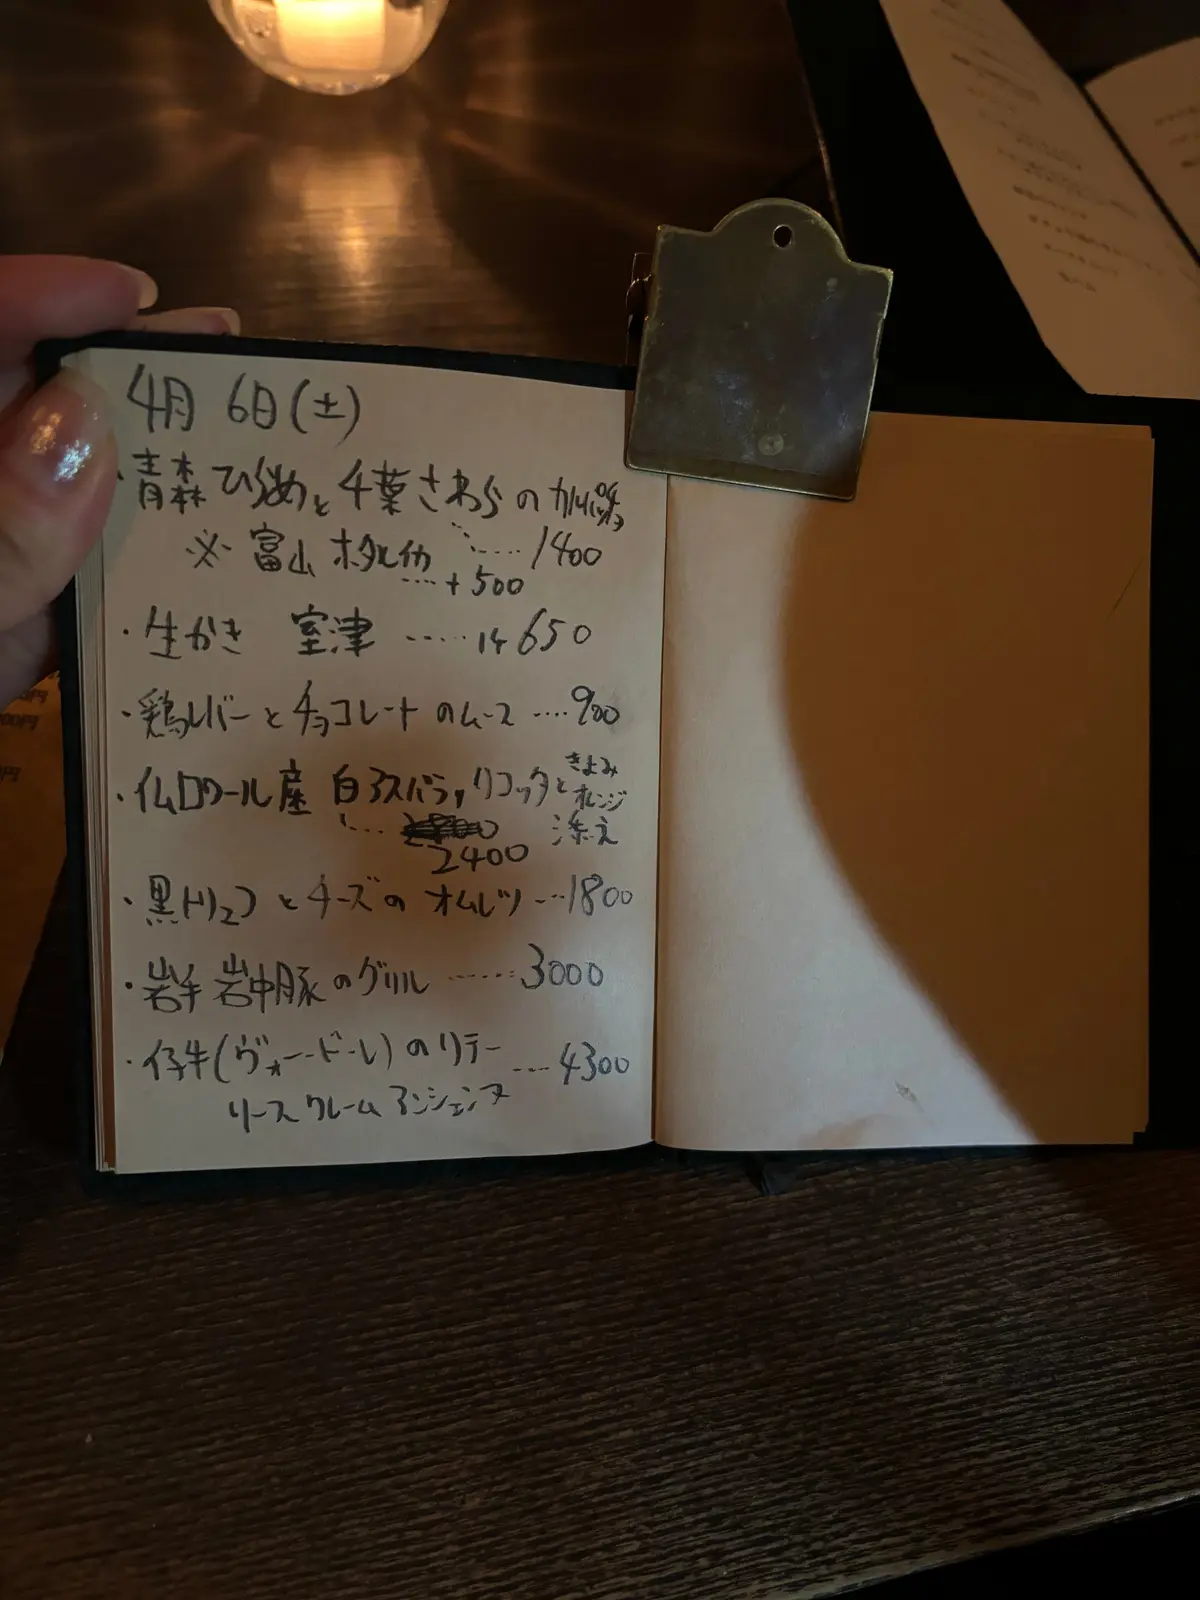 4月 6日(土)
・青森 ひらめと 千葉さわらの カルパッチョ
※ 富山 ホタルイカ ……1400
……+500
・生かき 室津 ……1ヶ650
・鶏レバーとチョコレートのムース ……900
・仏ロワール産 白アスパラ, リコッタと きよみ
オレンジ
添え
……
2400
・黒トリュフとチーズの オムレツ …1800
・岩手 岩中豚のグリル ……3000
・仔牛(ヴォードレ)のソテー …4300
ソース クレーム アンシェンヌ